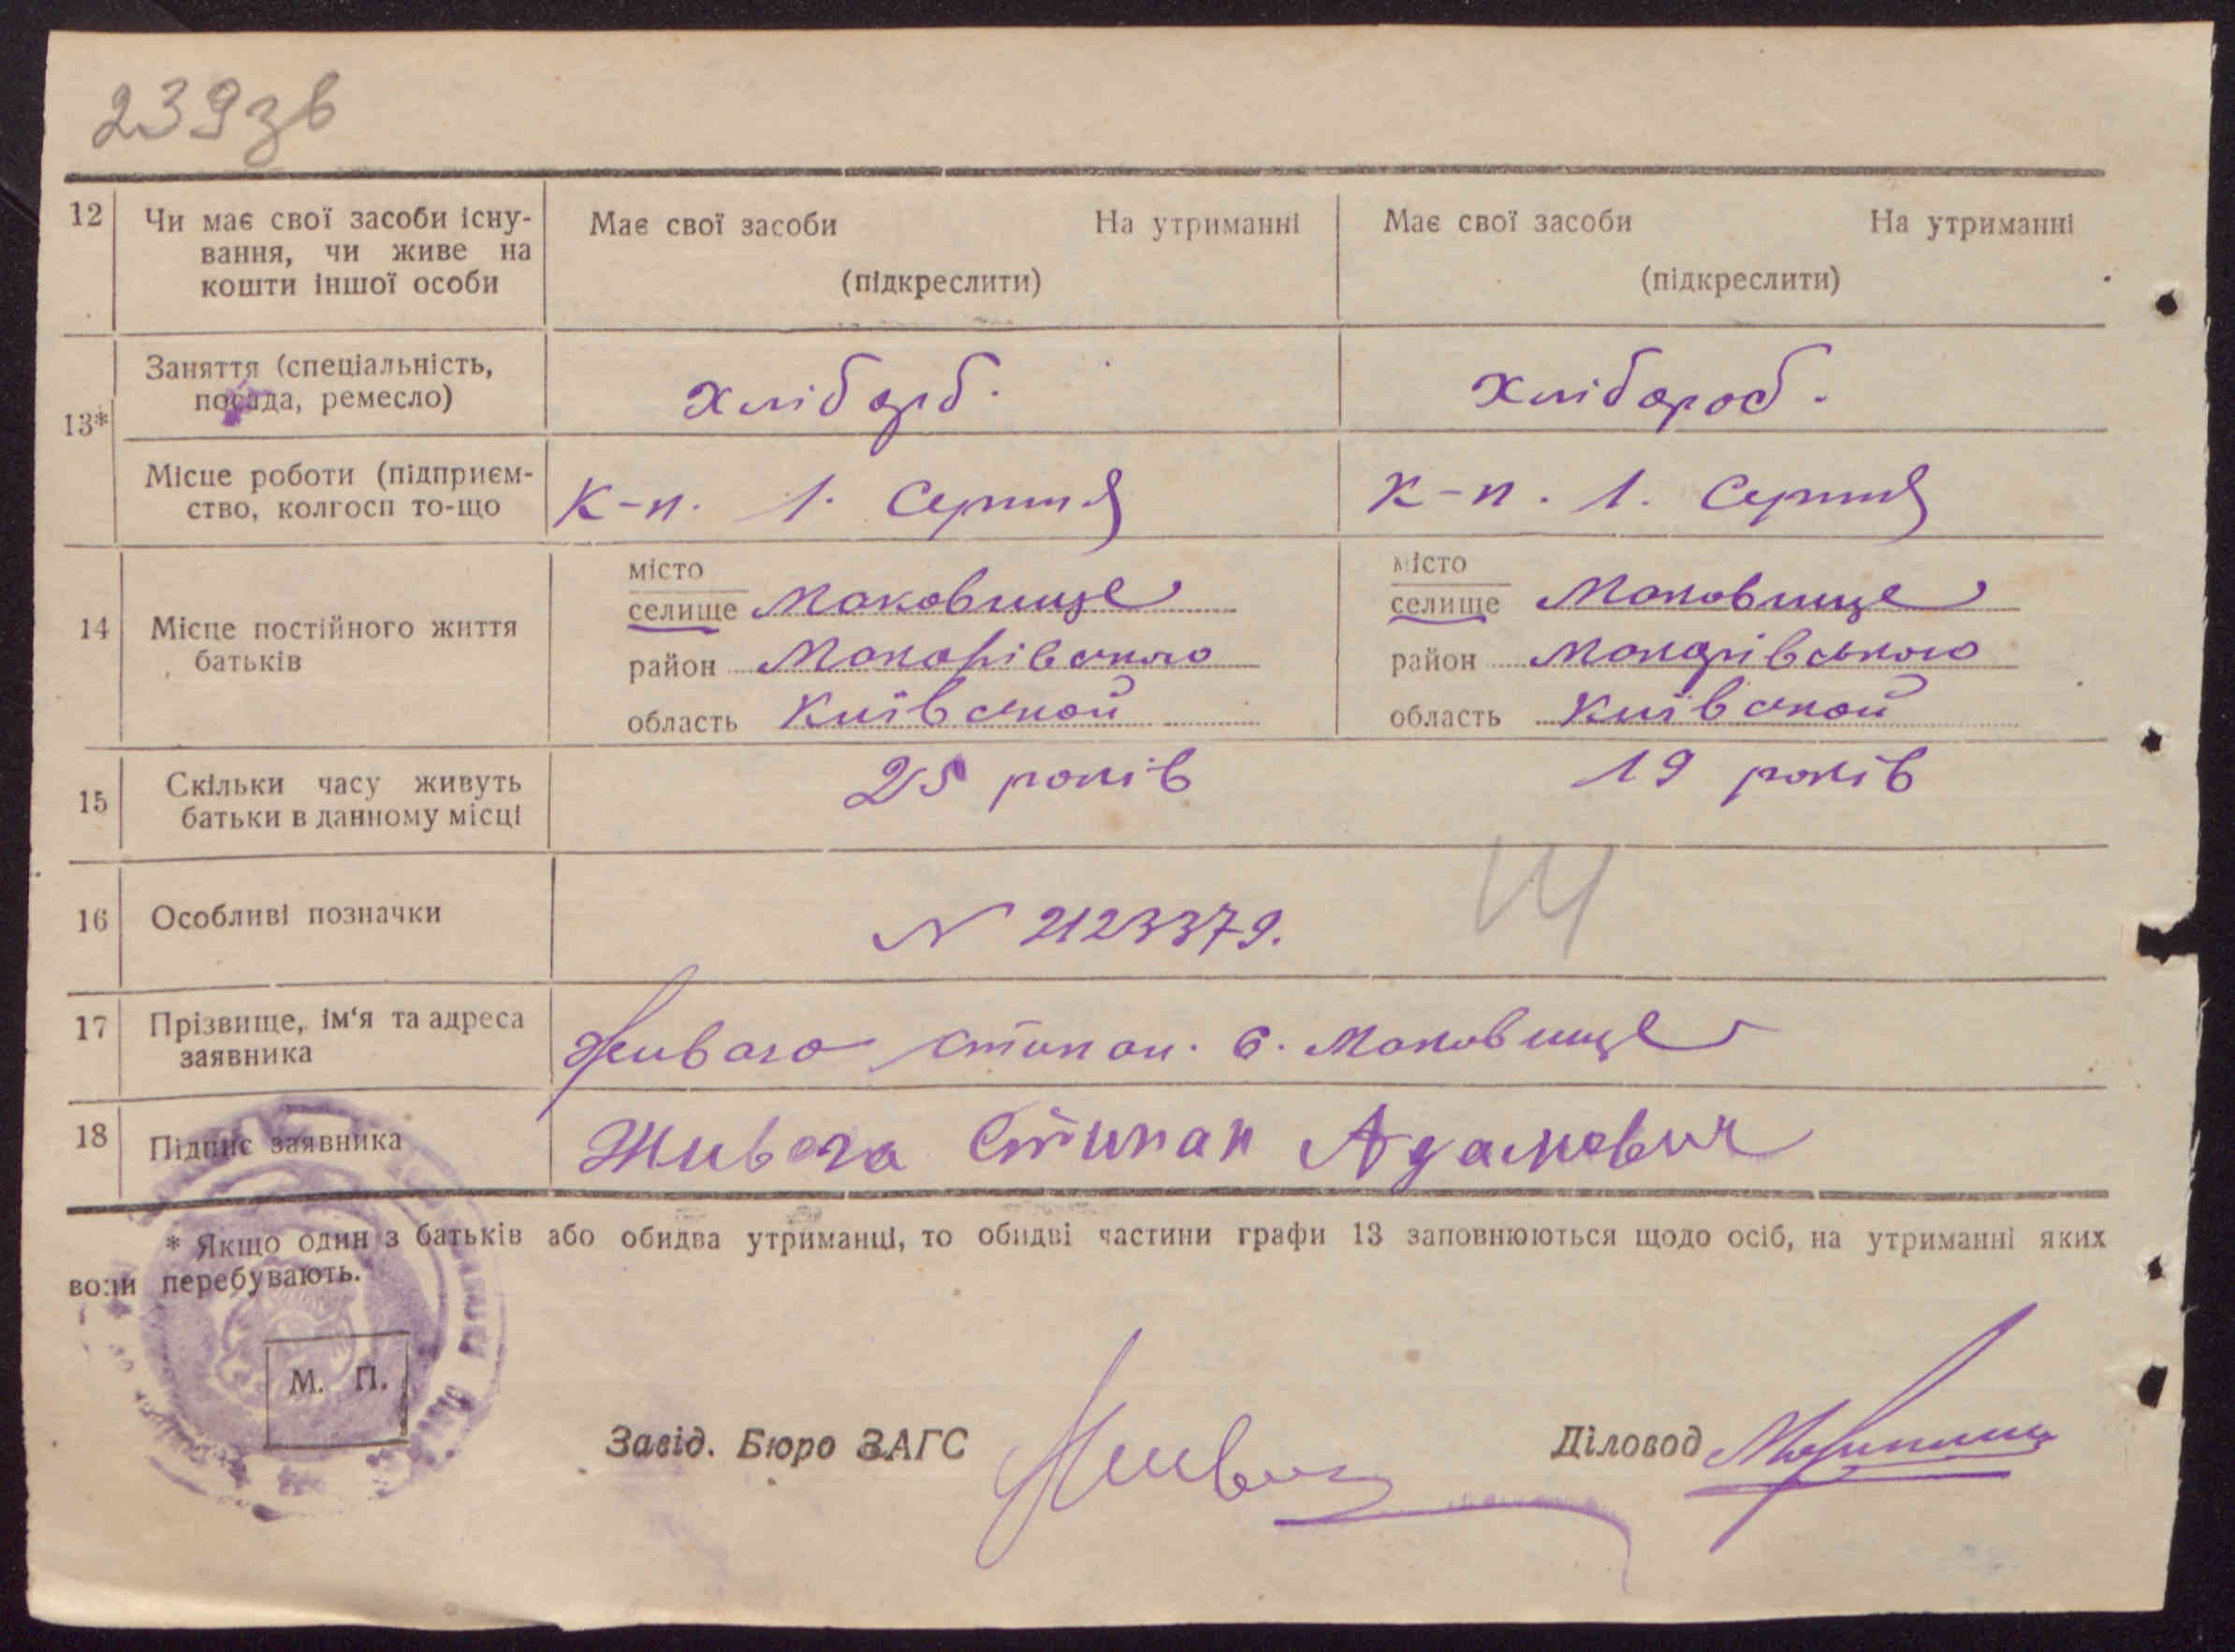 239зв
12 Чи має свої засоби існу-
вання, чи живе на
кошти іншої особи
Має свої засоби На утриманні
(підкреслити)
Має свої засоби На утриманні
(підкреслити)
13*
Заняття (спеціальність,
посада, ремесло)
хлібороб.
хлібороб.
Місце роботи (підприєм-
ство, колгосп то-що
к-п. 1. Серпня
к-п. 1. Серпня
14 Місце постійного життя
батьків
місто
селище Маковище
район Макарівського
область Київской
місто
селище Маковище
район Макарівського
область Київской
15 Скільки часу живуть
батьки в данному місці
25 років
19 років
16 Особливі позначки
N 2123379.
17 Прізвище, ім'я та адреса
заявника
Живага Стипан. с. Маковище
18 Підпис заявника
Живага Стипан Адамович
* Якщо один з батьків або обидва утриманці, то обидві частини графи 13 заповнюються щодо осіб, на утриманні яких
вони перебувають.
М. П.
Завід. Бюро ЗАГС
Діловод